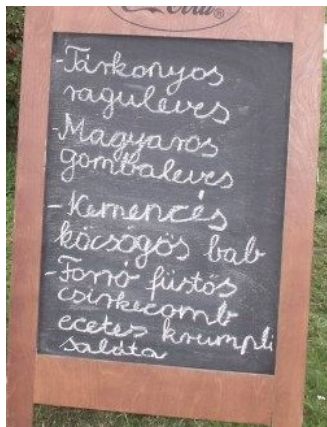 -Tárkonyos
raguleves
-Magyaros
gombaleves
-Kemencés
köcsögös bab
-Forró füstös
csirkecomb
ecetes krumpli
saláta